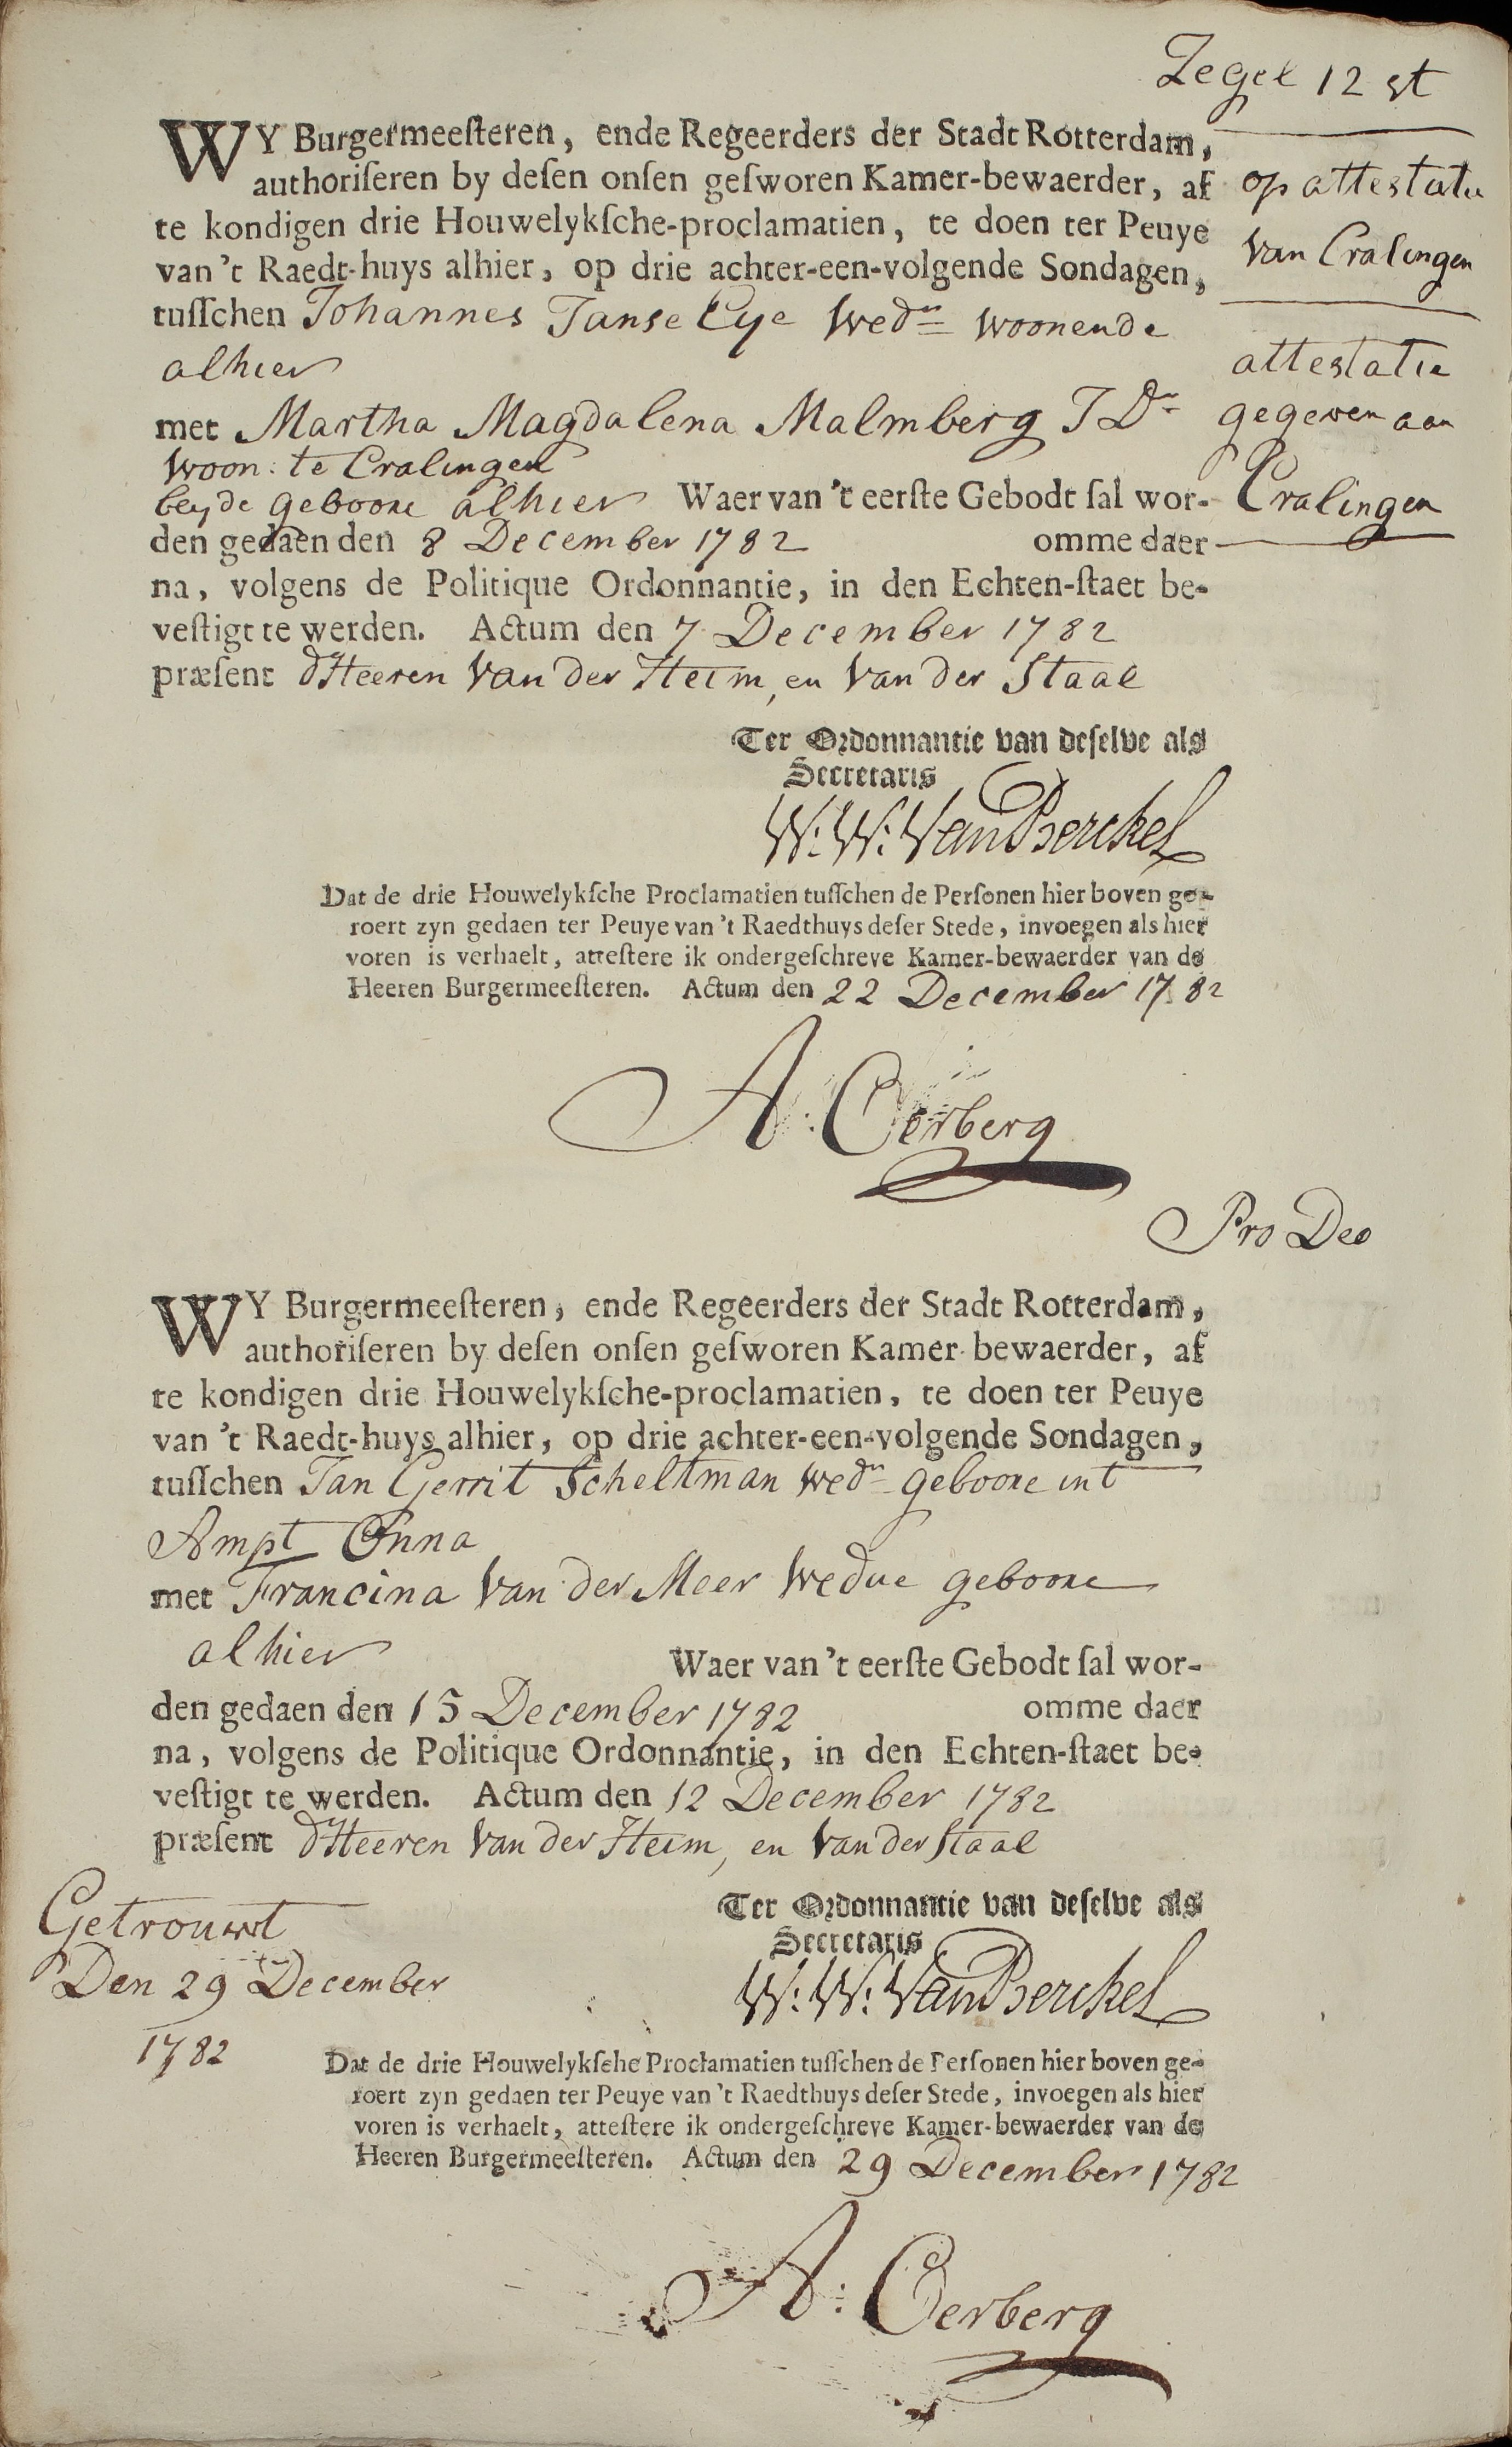 Zegel 12 st
WY Burgermeeſteren, ende Regeerders der Stadt Rotterdam,
authoriſeren by deſen onſen geſworen Kamer-bewaerder, af
te kondigen drie Houwelykſche-proclamatien, te doen ter Peuye
van 't Raedt-huys alhier, op drie achter-een-volgende Sondagen,
tuſſchen Johannes Janse Eye Wedr woonende
alhier
met Martha Magdalena Malmberg J Dr
woon: te Cralingen
beyde geboore alhier Waer van 't eerſte Gebodt ſal wor-
den gedaen den 8 December 1782 omme daer
na, volgens de Politique Ordonnantie, in den Echten-ſtaet be-
veſtigt te werden. Actum den 7 December 1782
præſent dHeeren Van der Heim, en Van der Staal
op attestatie
van Cralingen
attestatie
gegeven aan
Cralingen
Ter Ordonnantie van deſelve als
Secretaris
W: W: Van Berckel
Dat de drie Houwelykſche Proclamatien tuſſchen de Perſonen hier boven ge-
roert zyn gedaen ter Peuye van 't Raedthuys deſer Stede, invoegen als hier
voren is verhaelt, atteſtere ik ondergeſchreve Kamer-bewaerder van de
Heeren Burgermeeſteren. Actum den 22 December 1782
A: Oerberg
Pro Deo
WY Burgermeeſteren, ende Regeerders der Stadt Rotterdam,
authoriſeren by deſen onſen geſworen Kamer-bewaerder, af
te kondigen drie Houwelykſche-proclamatien, te doen ter Peuye
van 't Raedt-huys alhier, op drie achter-een-volgende Sondagen,
tuſſchen Jan Gerrit Scheltman Wedr geboore int
Ampt Onna
met Francina Van der Meer Wedue geboore
alhier Waer van 't eerſte Gebodt ſal wor-
den gedaen den 15 December 1782 omme daer
na, volgens de Politique Ordonnantie, in den Echten-ſtaet be-
veſtigt te werden. Actum den 12 December 1782
præſent dHeeren Van der Heim, en Van der Staal
Ter Ordonnantie van deſelve als
Secretaris
W: W: Van Berckel
Getrouwt
Den 29 December
1782
Dat de drie Houwelykſche Proclamatien tuſſchen de Perſonen hier boven ge-
roert zyn gedaen ter Peuye van 't Raedthuys deſer Stede, invoegen als hier
voren is verhaelt, atteſtere ik ondergeſchreve Kamer-bewaerder van de
Heeren Burgermeeſteren. Actum den 29 December 1782
A: Oerberg